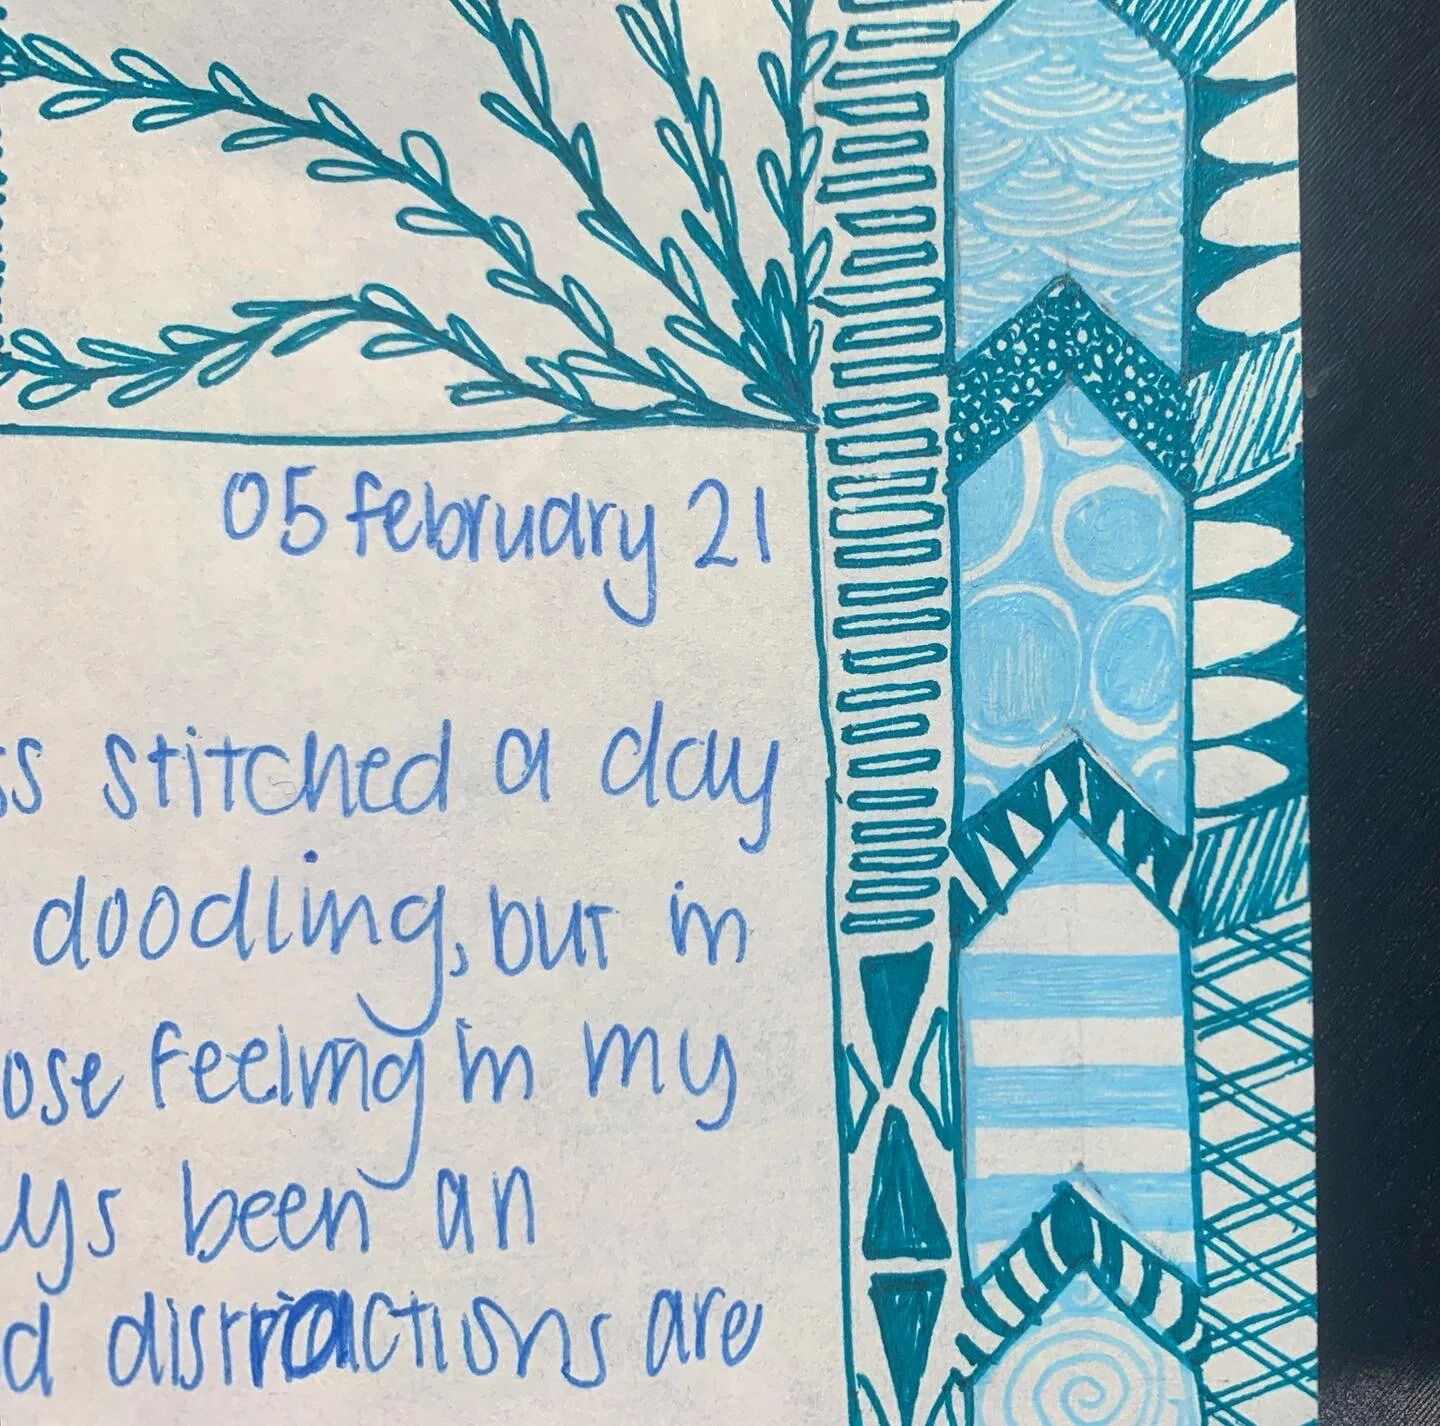 05 february 21
stitched a day
doodling, but in
feeling in my
been an
distractions are